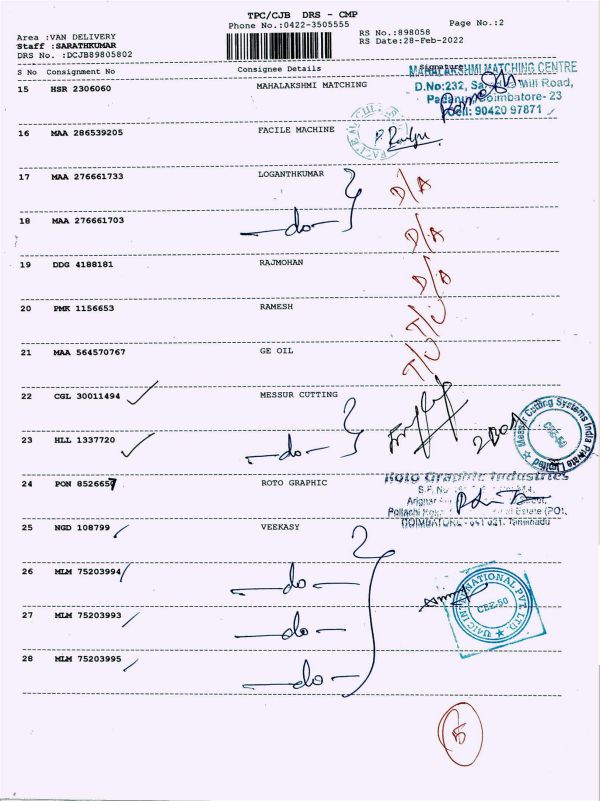 TPC/CJB DRS - CMP
Phone No.:0422-3505555
Page No.:2
Area :VAN DELIVERY
RS No.:898058
Staff :SARATHKUMAR
RS Date:28-Feb-2022
DRS No. :DCJB89805802
S No Consignment No Consignee Details Signature
15 HSR 2306060 MAHALAKSHMI MATCHING
MAHALAKSHMI MATCHING CENTRE
D.No:232, Mill Road,
Coimbatore- 23
Cell: 90420 97871
16 MAA 286539205 FACILE MACHINE
17 MAA 276661733 LOGANTHKUMAR D/A
18 MAA 276661703 do D/A
19 DDG 4188181 RAJMOHAN D/A
20 PMK 1156653 RAMESH
21 MAA 564570767 GE OIL
22 CGL 30011494 MESSUR CUTTING
Messer Cutting Systems India Private Limited
CBE-50
23 HLL 1337720 do
24 PON 8526657 ROTO GRAPHIC
Roto Graphic Industries
S.F. No
Pollachi Estate (PO),
COIMBATORE - 641 021. Tamilnadu
25 NGD 108799 VEEKASY
26 MLM 75203994 do
INTERNATIONAL PVT. LTD.
CBE-50
27 MLM 75203993 do
28 MLM 75203995 do